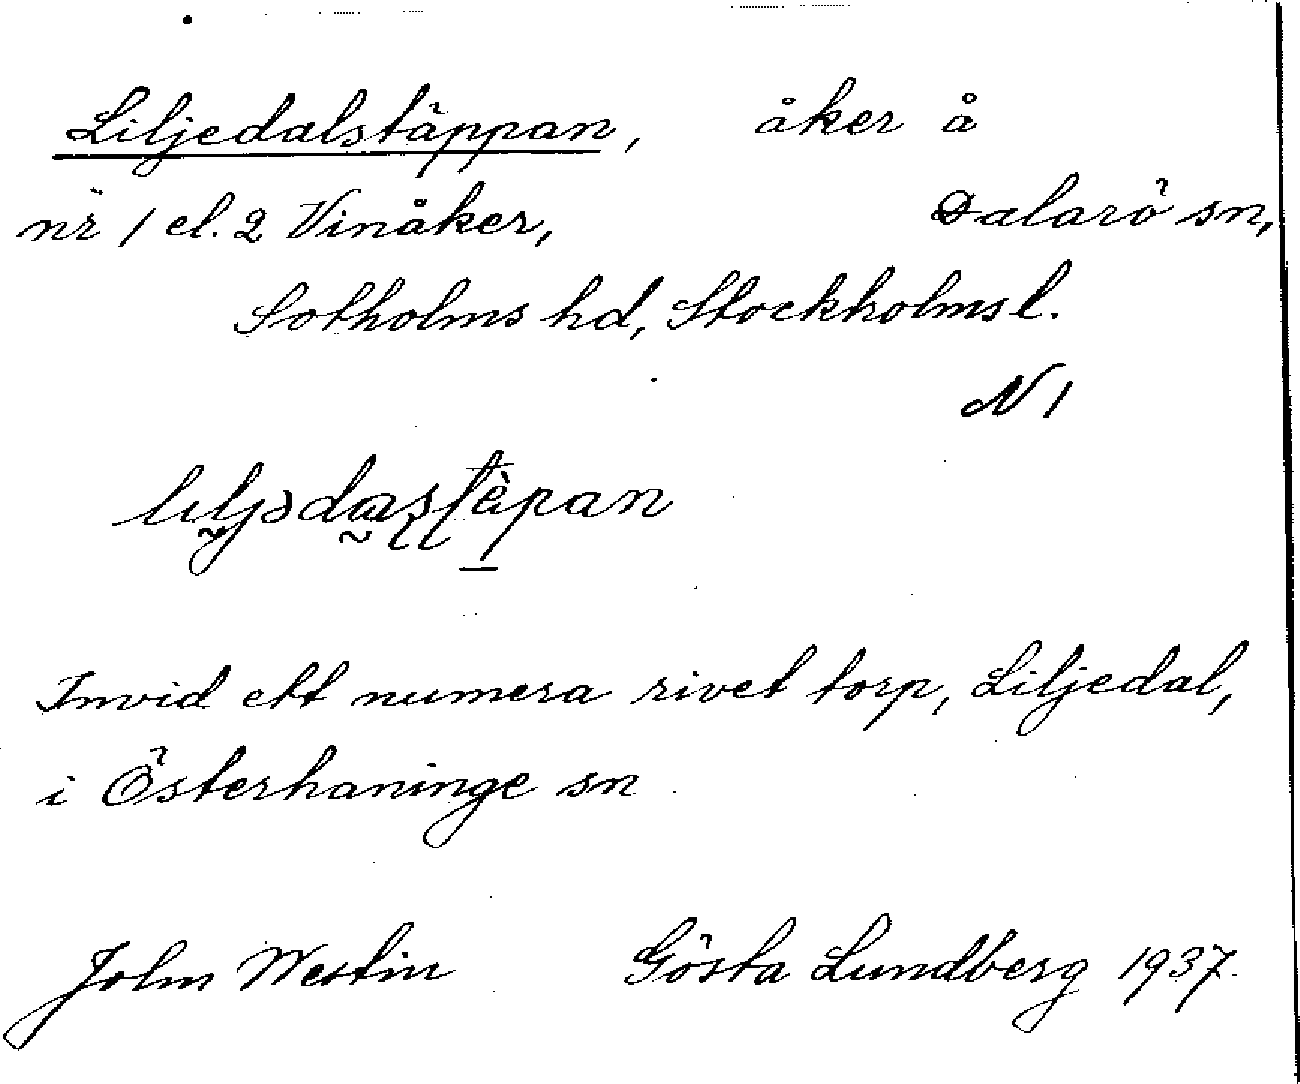 Liljedalstäppan, åker å
nr 1 el. 2 Vinåker, Dalarö sn,
Sotholms hd, Stockholms l.
N 1
Invid ett numera rivet torp, Liljedal,
i Österhaninge sn
John Westin Gösta Lundberg 1937.